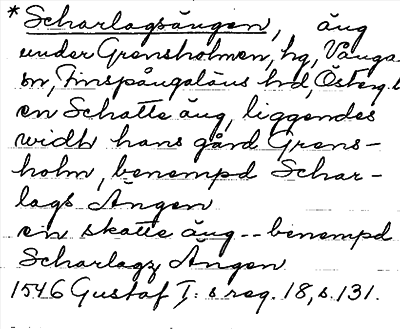 *Scharlagsängen, äng
under Grensholmen, hg, Vånga
sn, Finspångaläns hd, Österg.l
en Schatte äng, liggendes
widh hans gård Grens-
holm, benempd Schar-
lags Ängen
en skatte äng -- benempd
Scharlagz Ängen
1546 Gustaf I: s reg. 18, s. 131.